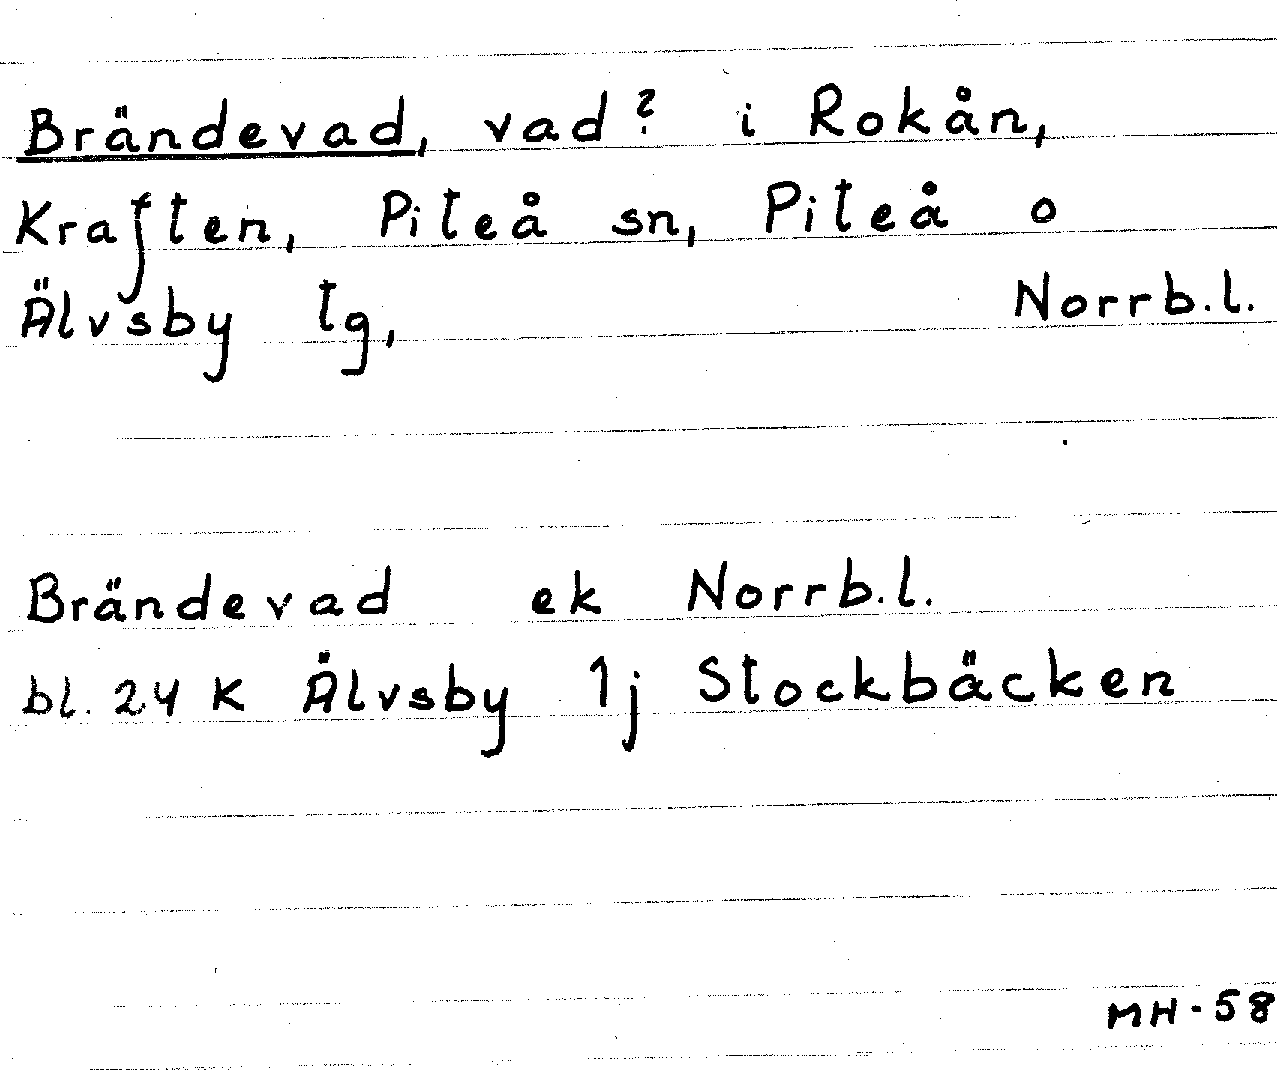 Brändevad, vad? i Rokån,
Kraften, Piteå sn, Piteå o
Älvsby tg, Norrb.l.
Brändevad ek Norrb.l.
bl. 24 K Älvsby 1j Stockbäcken
MH-58